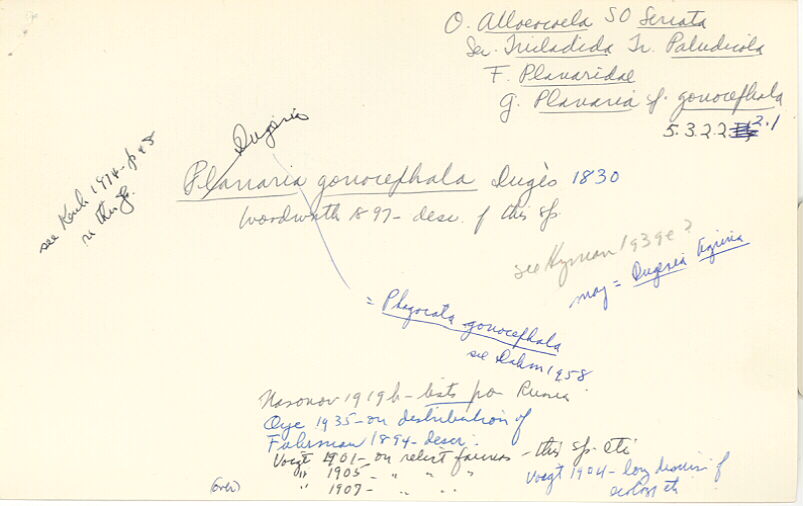 O. Alloeocoela SO Seriata
Sec. Tricladida Tr. Paludicola
F. Planaridae
g. Planaria sp. gonocephala
5.3.2.2 2.1
Dugesia
Planaria gonocephala Dugès 1830
Woodworth 1897- descr. of this sp.
see Kenk 1974- p 45
re this sp.
see Hyman 1939e?
may = Dugesia tigrina
= Phagocata gonocephala
see Dahm 1958
Nasonov 1919b- lists for Russia
Oye 1935- on distribution of
Fuhrman 1894- descr.
Voigt 1901- on relict faunas - this sp. etc
" 1905- " " "
" 1907- " "
Voigt 1904- long discussion of
ecology etc
(over)